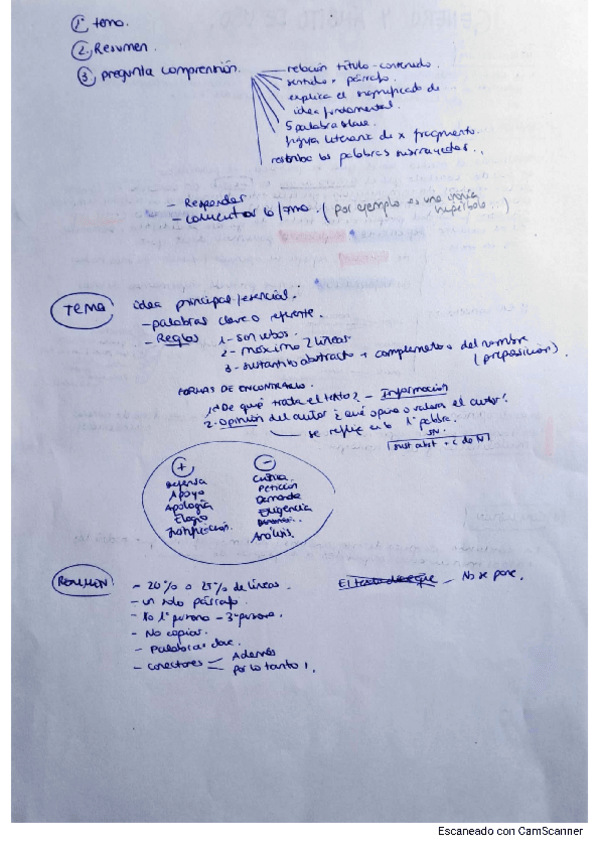 1. tema.
2. Resumen.
3. pregunta comprensión.
relación título-contenido.
sentido x párrafo.
explica el significado de
idea fundamental.
5 palabra clave.
figura literaria de x fragmento.
reescribe las palabras subrayadas.
- Responder
- comentar lo/ (por ejemplo es una ironía
hipérbole)
TEMA idea principal/esencial.
- palabras clave o referente.
- Reglas 1- sin verbos.
2- máximo 2 líneas.
3- sustantivo abstracto + complemento del nombre
(preposición).
FORMAS DE ENCONTRARLO.
1. ¿De qué trata el texto? - Información
2. Opinión del autor ¿qué opina o valora el autor?
se refleja en la 1ª palabra.
SN.
sust abst + C de N
+
-
Defensa
Apoyo
Apología
Elogio
Justificación.
Crítica
Petición
Demanda
Exigencia
Análisis.
RESUMEN
- 20% o 25% de líneas.
- un solo párrafo.
- No 1ª persona - 3ª persona.
- No copiar.
- Palabras clave.
- conectores Además
por lo tanto
El texto - No se pone.
Escaneado con CamScanner